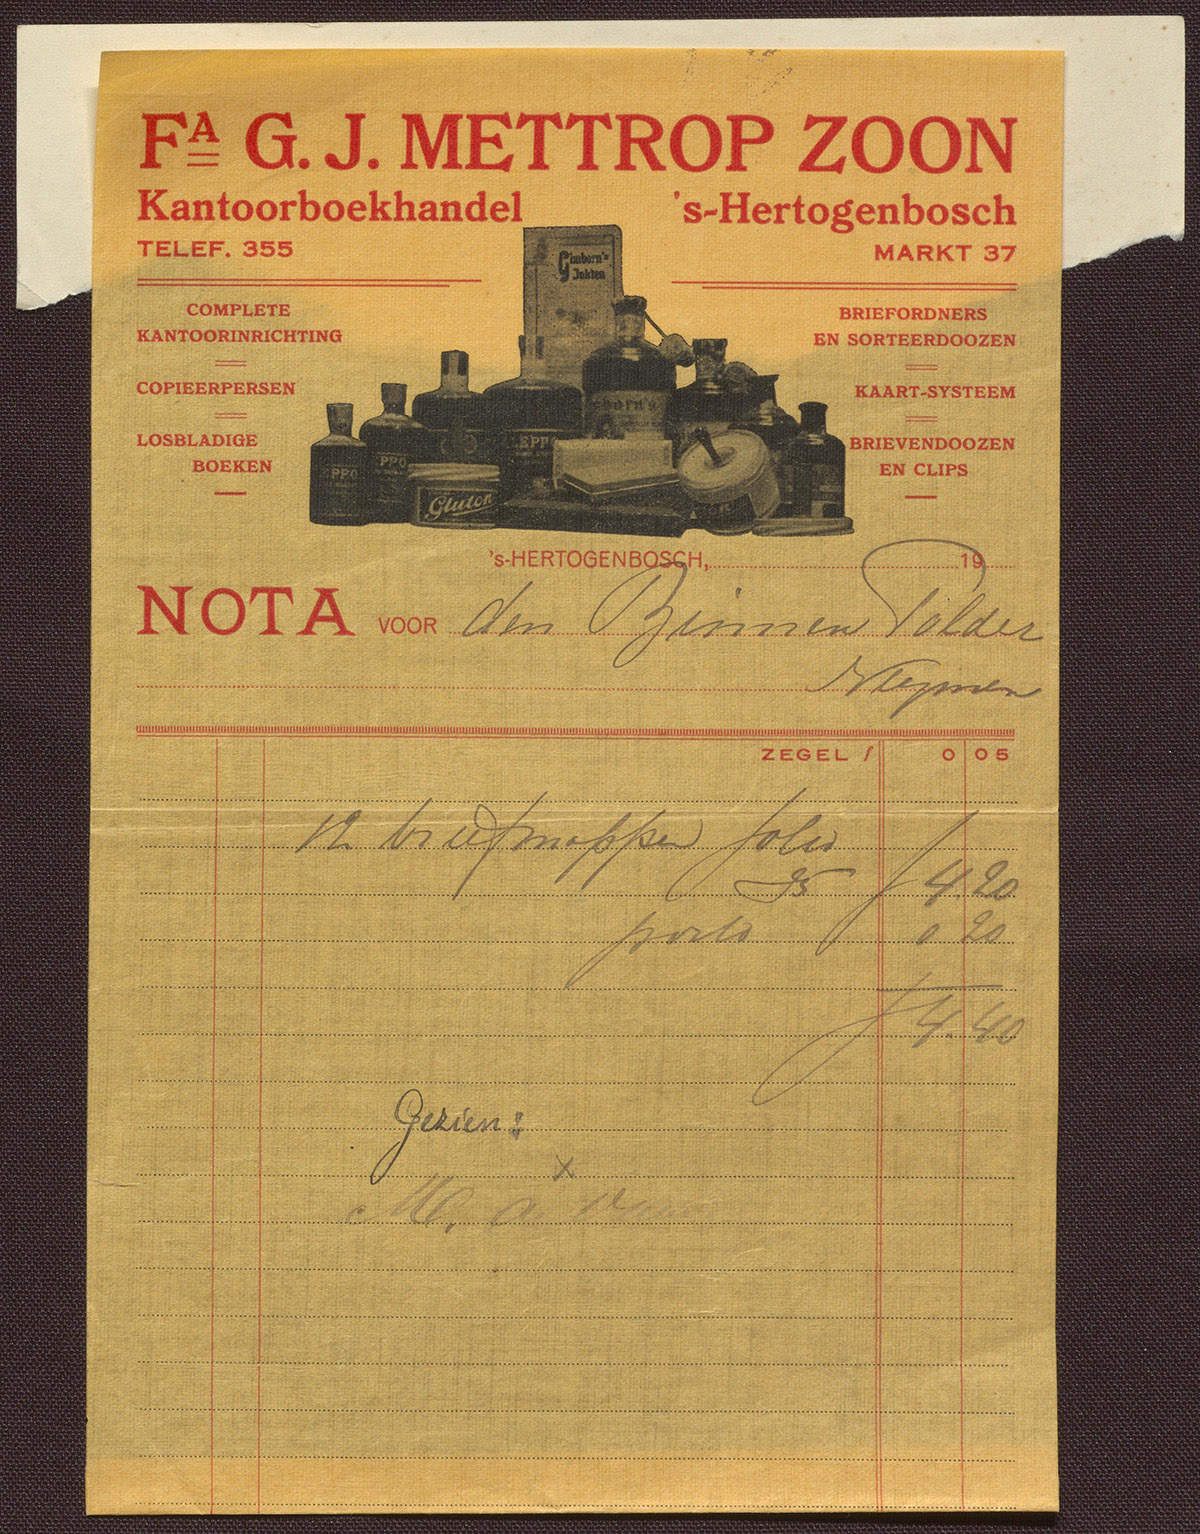 FA G. J. METTROP ZOON
Kantoorboekhandel 's-Hertogenbosch
TELEF. 355 MARKT 37
COMPLETE
KANTOORINRICHTING
COPIEERPERSEN
LOSBLADIGE
BOEKEN
Gimborn's
Inkten
EPPO
EPPO
LEPPO
born's
Gluton
BRIEFORDNERS
EN SORTEERDOOZEN
KAART-SYSTEEM
BRIEVENDOOZEN
EN CLIPS
's-HERTOGENBOSCH, 19
NOTA VOOR den Binnen Polder
ZEGEL f 0 05
12 briefmappen folio
35 f 4.20
porto 0 20
f 4.40
Gezien:
x